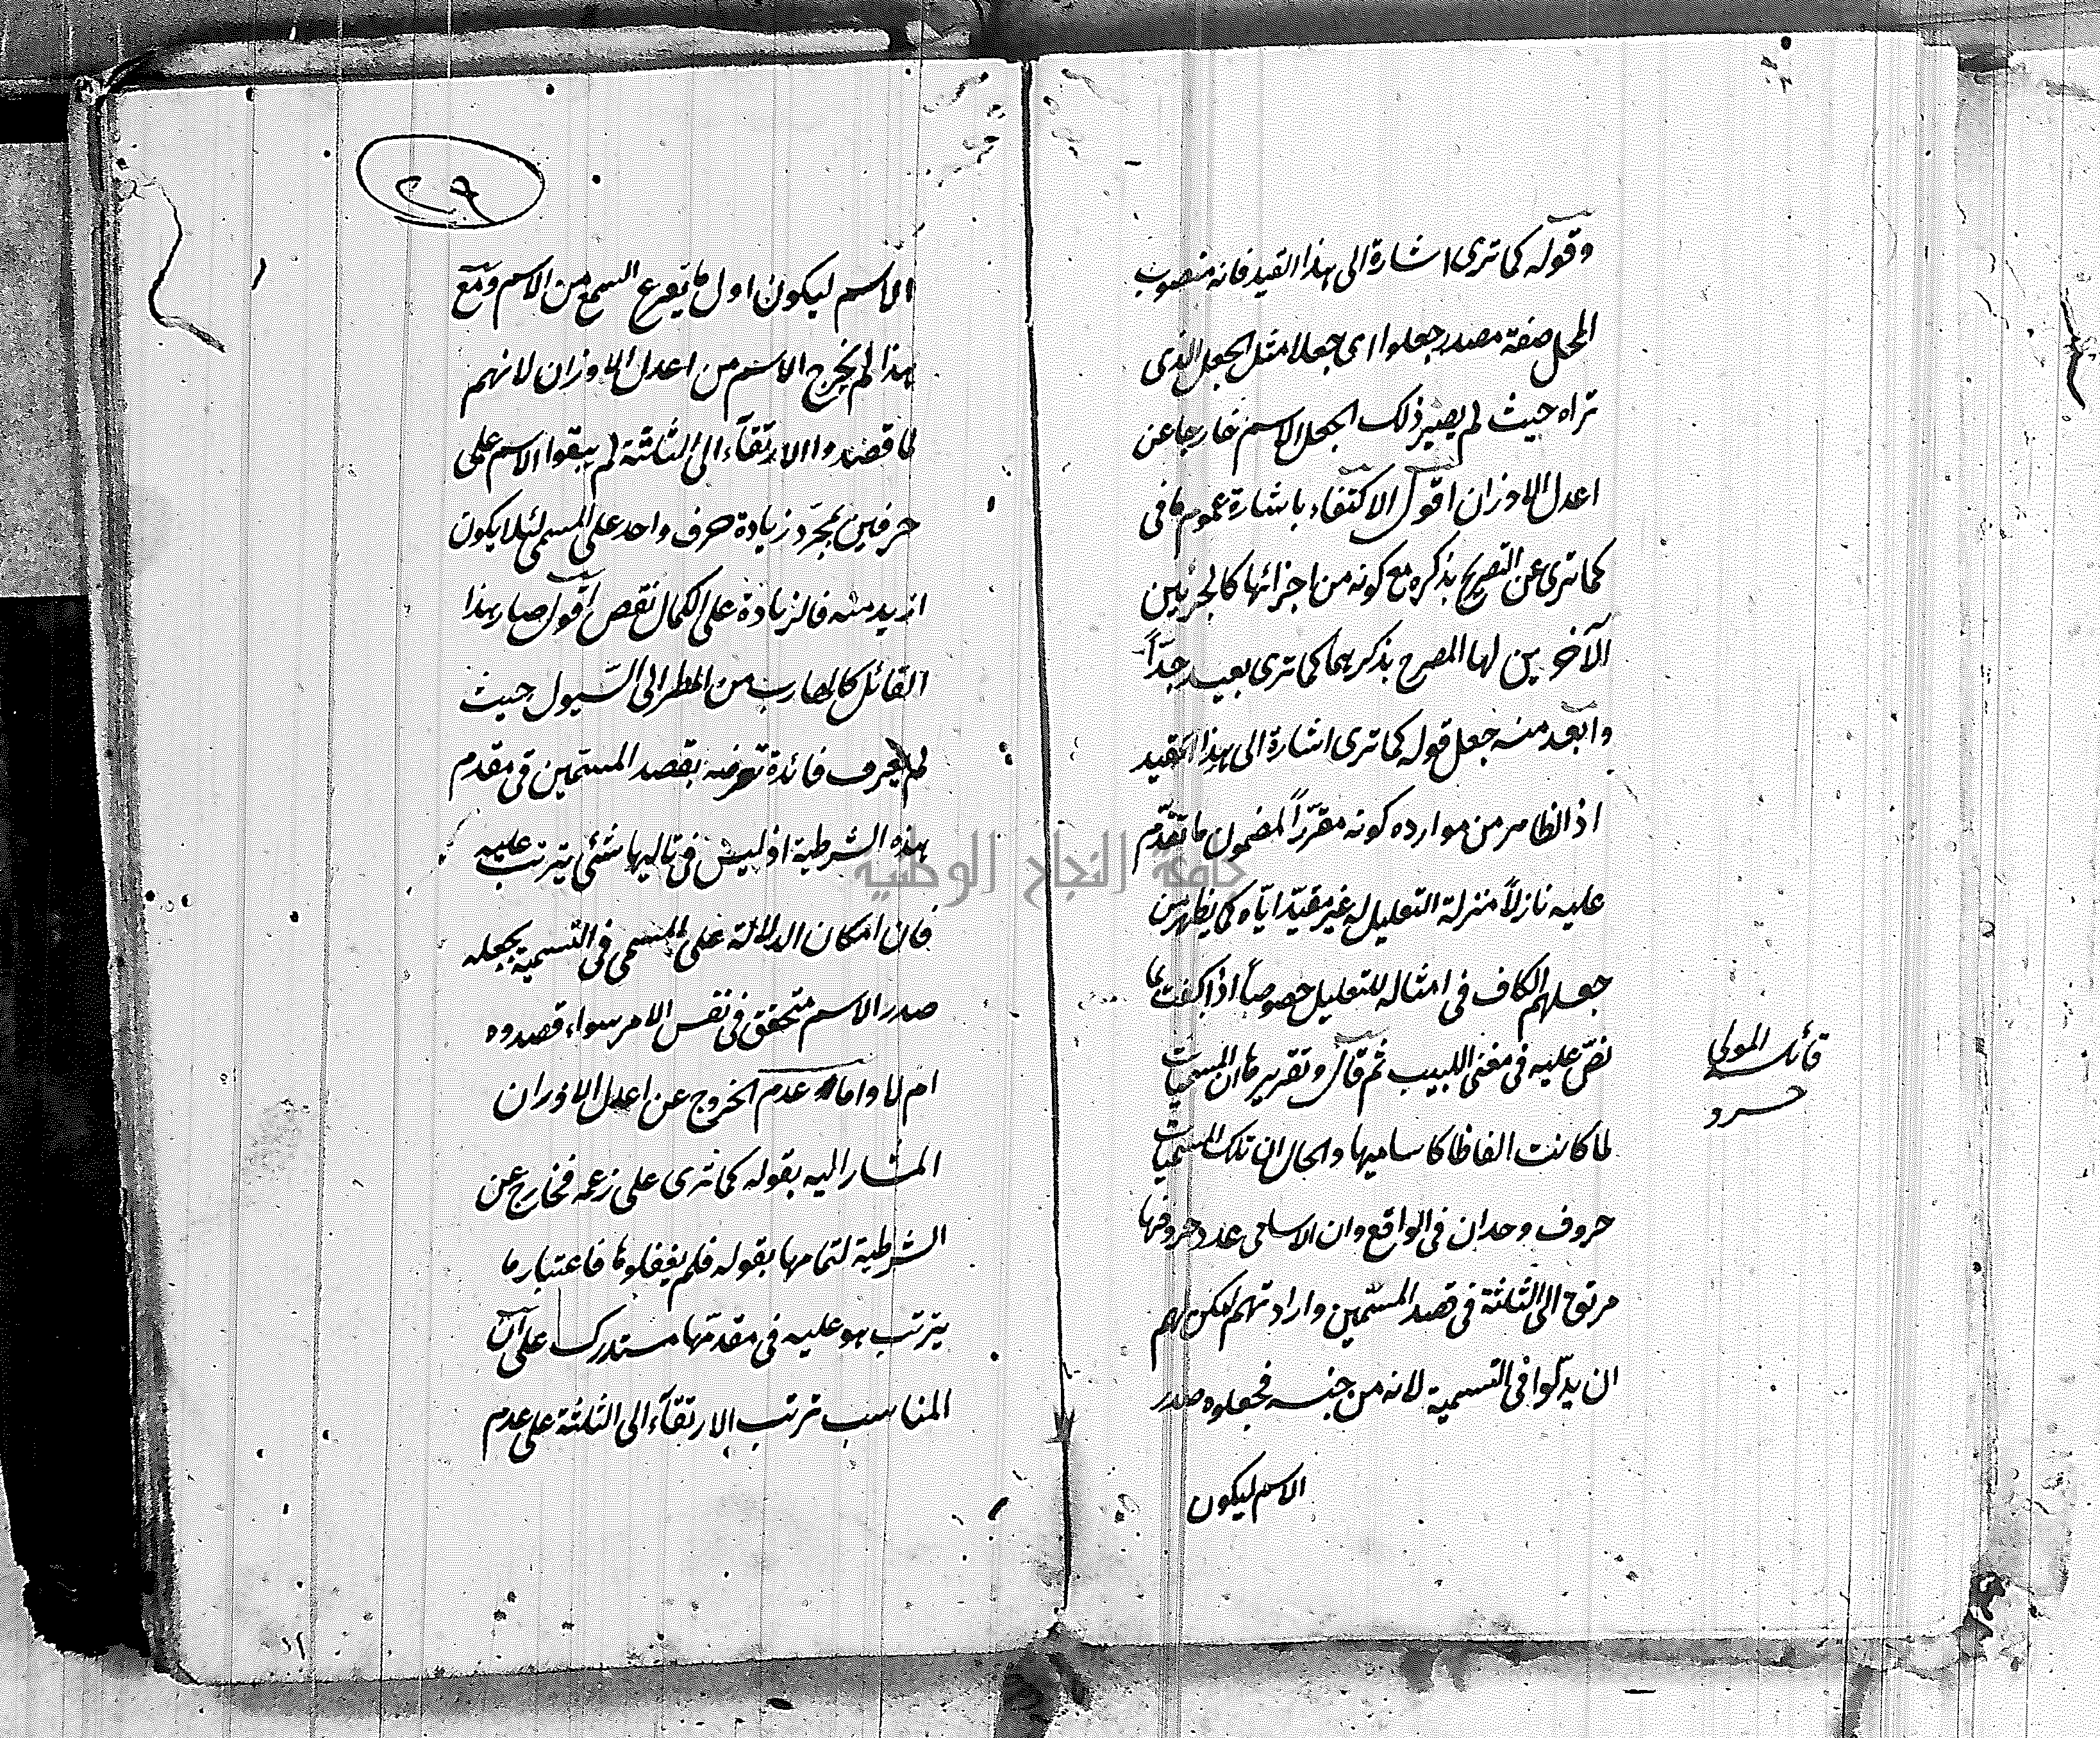 وقوله كما ترى اشارة الى هذا القيد فانه منصوب
المحل صفة مصدر جعلوا اى جعلا مثل الجعل الذى
تراه حيث لم يصير ذلك الجعل الاسم خارجا عن
اعدل الاوزان اقول الاكتفاء باشارة عموم ما فى
كما ترى عن التصريح بذكره مع كونه من اجزائها كالجزئين
الآخرين لها المصرح بذكرهما كما ترى بعيد جدّاً
وابعد منه جعل قوله كما ترى اشارة الى هذا القيد
اذ الظاهر من موارده كونه مقرّراً لمضمون ما تقدّم
عليه نازلاً منزلة التعليل له غير مقيّد ايّاه كما يظهر من
جعلهم الكاف فى امثاله للتعليل خصوصاً اذا كفت بما
نصّ عليه فى مغنى اللبيب ثم قال وتقريره ان المسميات
لما كانت الفاظا كاساميها والحال ان تلك المسميات
حروف وحدان فى الواقع وان الاسامى عدد حروفها
مرتق الى الثلثة فى قصد المسمّين وارادتهم امكن لهم
ان يدلّوا فى التسمية لانه من جنسه فجعلوه صدر
الاسم ليكون
قائله المولى
خسرو
٢٩
الاسم ليكون اول ما يقرع السمع من الاسم ومع
هذا لم يخرج الاسم من اعدل الاوزان لانهم
لما قصدوا الارتقآء الى الثلثة لم يبقوا الاسم على
حرفين بمجرّد زيادة حرف واحد على المسمى لئلا يكون
ازيد منه فالزيادة على الكمال نقص اقول صار هذا
القائل كالهارب من المطر الى السّيول حيث
لم يعرف فائدة تعرضه بقصد المسمّين فى مقدم
هذه الشرطية اذ ليس فى تاليها شئى يترتب عليه
فان امكان الدلالة على المسمى فى التسمية بجعله
صدر الاسم متحقق فى نفس الامر سواء قصدوه
ام لا واما عدم الخروج عن اعدل الاوزان
المشار اليه بقوله كما ترى على زعمه فخارج عن
الشرطية لتمامها بقوله فلم يغفلوها فاعتبار ما
يترتب هو عليه فى مقدّمها مستدرك على ان
المناسب ترتب الارتقآء الى الثلثة على عدم
جامعة النجاح الوطنية